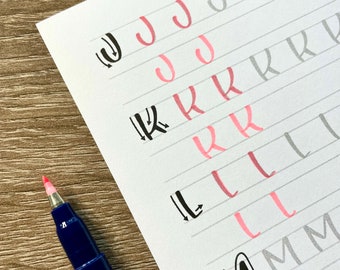 J J J J J J J
J J
K K K K K K K
K K
L L L L L L
L L
M M M M